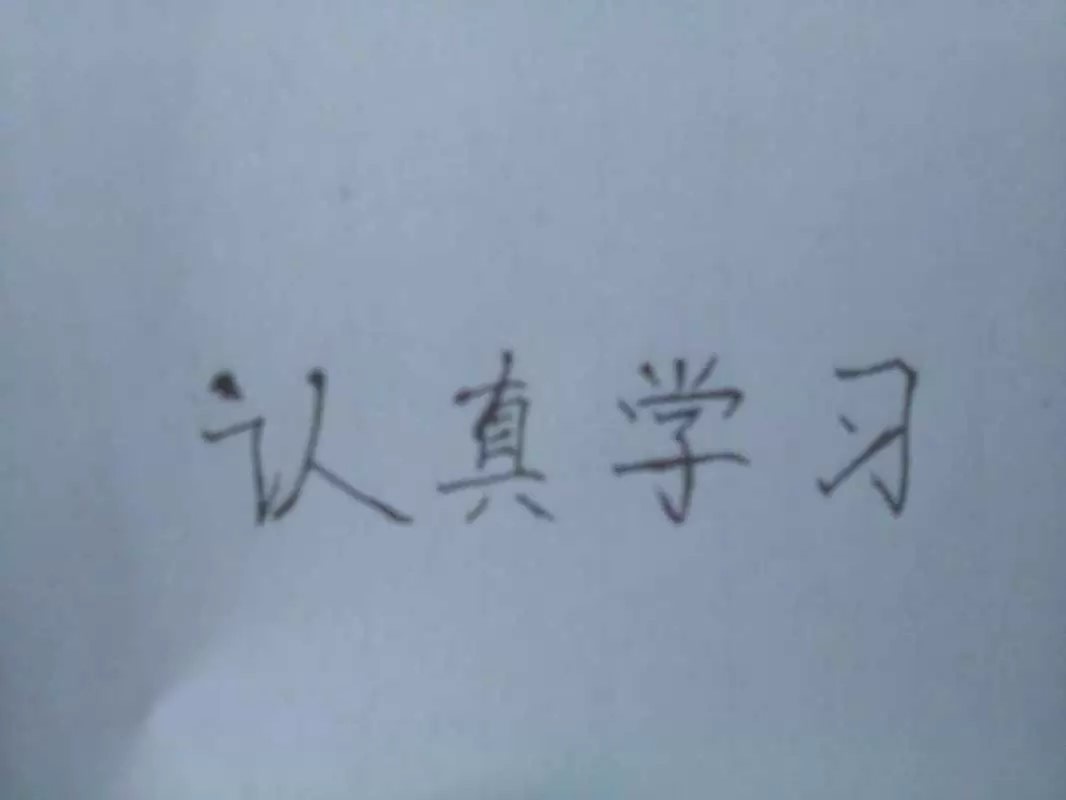 认真学习